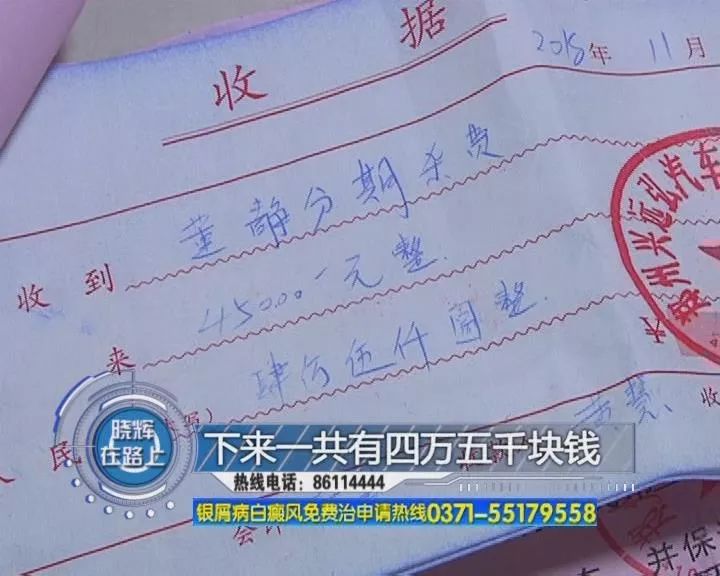 收 据
2018年 11月
收 到 董静分期杂费
来 45000一元整
肆万伍仟圆整
人民
州兴远弘汽车
下来一共有四万五千块钱
晓辉
在路上
热线电话：86114444
银屑病白癜风免费治申请热线0371-55179558
会计
井保